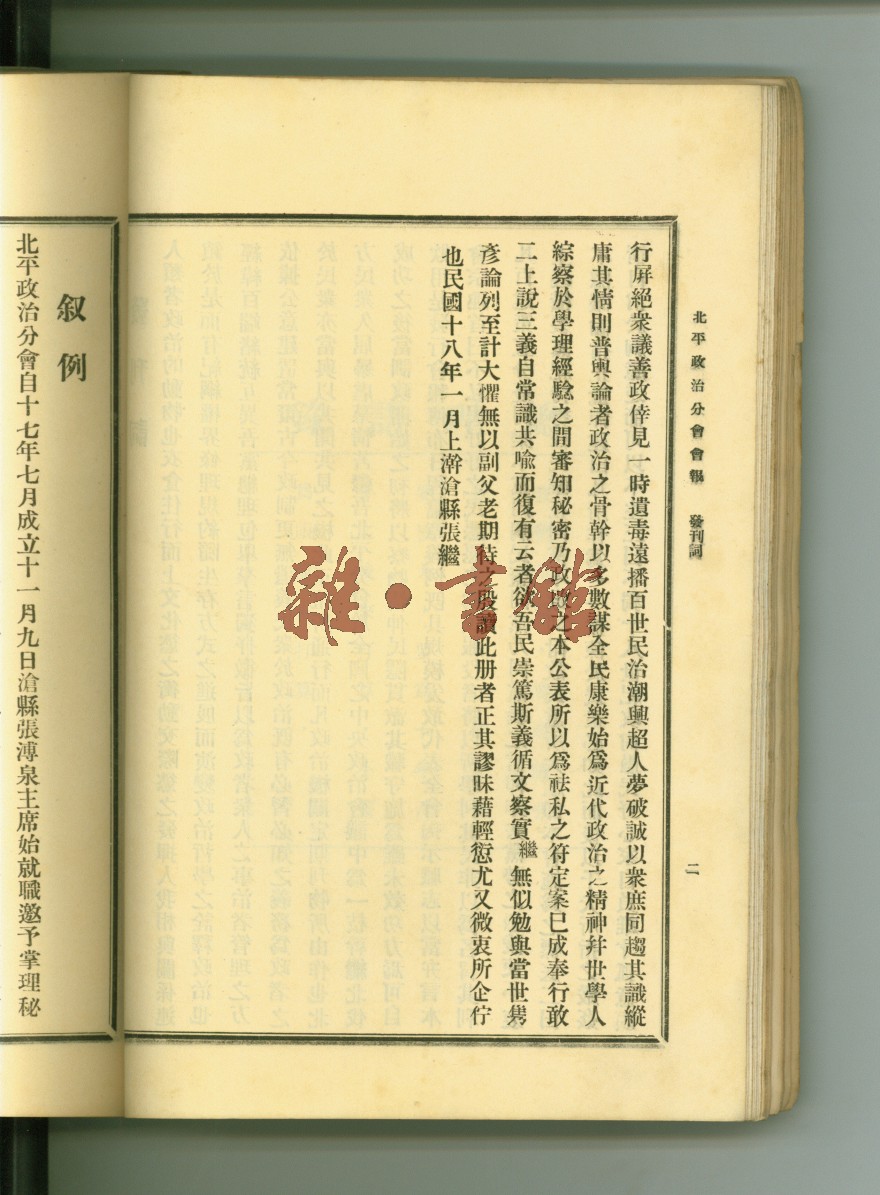 北平政治分會會報 發刊詞
二
行屏絕衆議善政倖見一時遺毒遠播百世民治潮興超人夢破誠以衆庶同趨其識縱
庸其情則普輿論者政治之骨幹以多數謀全民康樂始爲近代政治之精神幷世學人
綜察於學理經驗之間審知秘密乃政之本公表所以爲祛私之符定案已成奉行敢
二上說三義自常識共喩而復有云者欲吾民崇篤斯義循文察實繼無似勉與當世雋
彥論列至計大懼無以副父老期待之殷讀此册者正其謬昧藉輕愆尤又微衷所企佇
也民國十八年一月上澣滄縣張繼
叙例
北平政治分會自十七年七月成立十一月九日滄縣張溥泉主席始就職邀予掌理秘
雜·書館